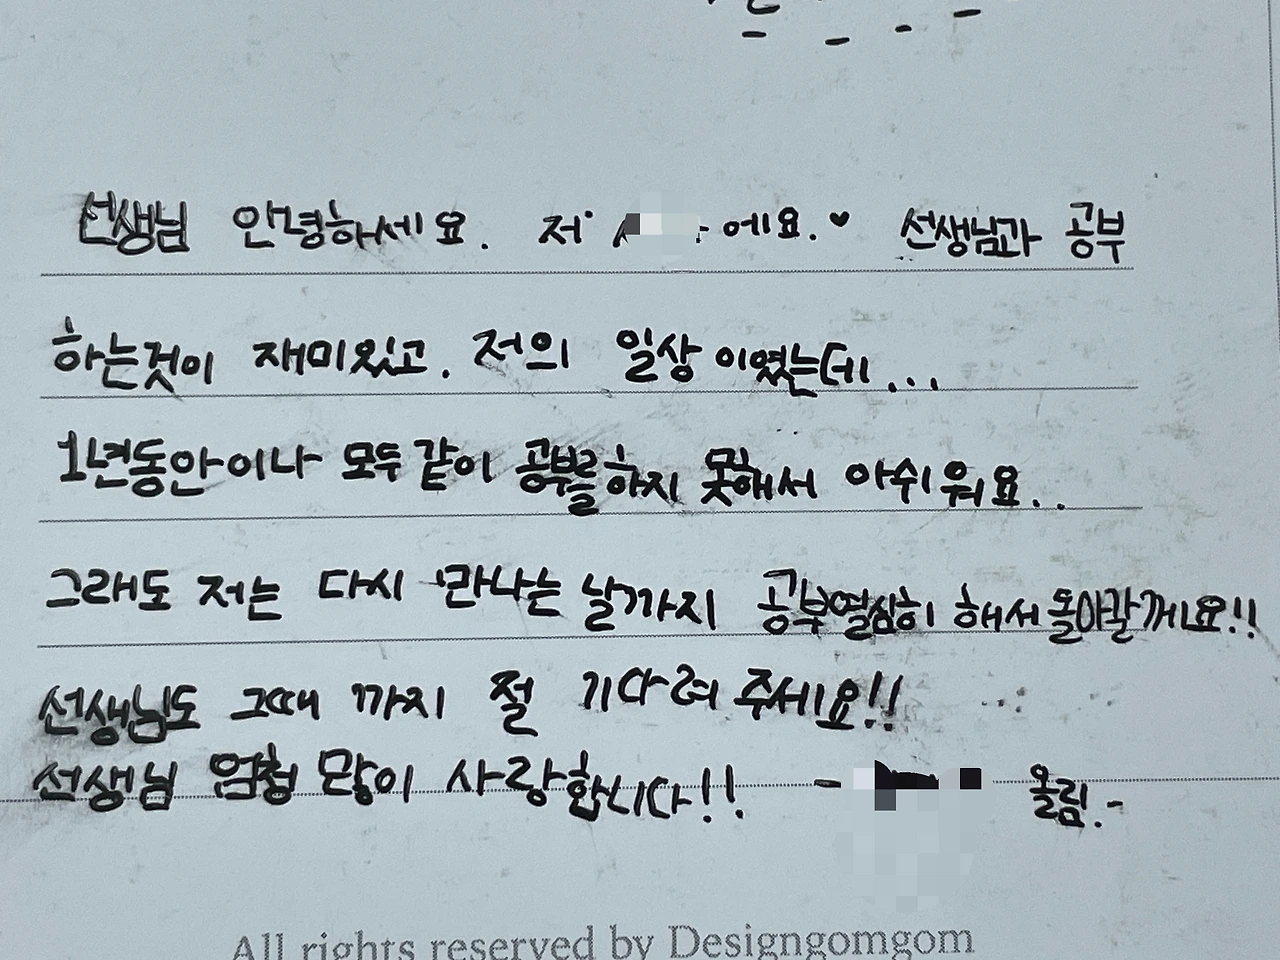 선생님 안녕하세요. 저 에요.♥ 선생님과 공부
하는것이 재미있고. 저의 일상이였는데...
1년동안이나 모두같이 공부를하지 못해서 아쉬워요..
그래도 저는 다시 만나는 날까지 공부열심히 해서돌아갈께요!!
선생님도 그때 까지 절 기다려주세요!!
선생님 엄청 많이 사랑합니다!! - 올림.-
All rights reserved by Designgomgom